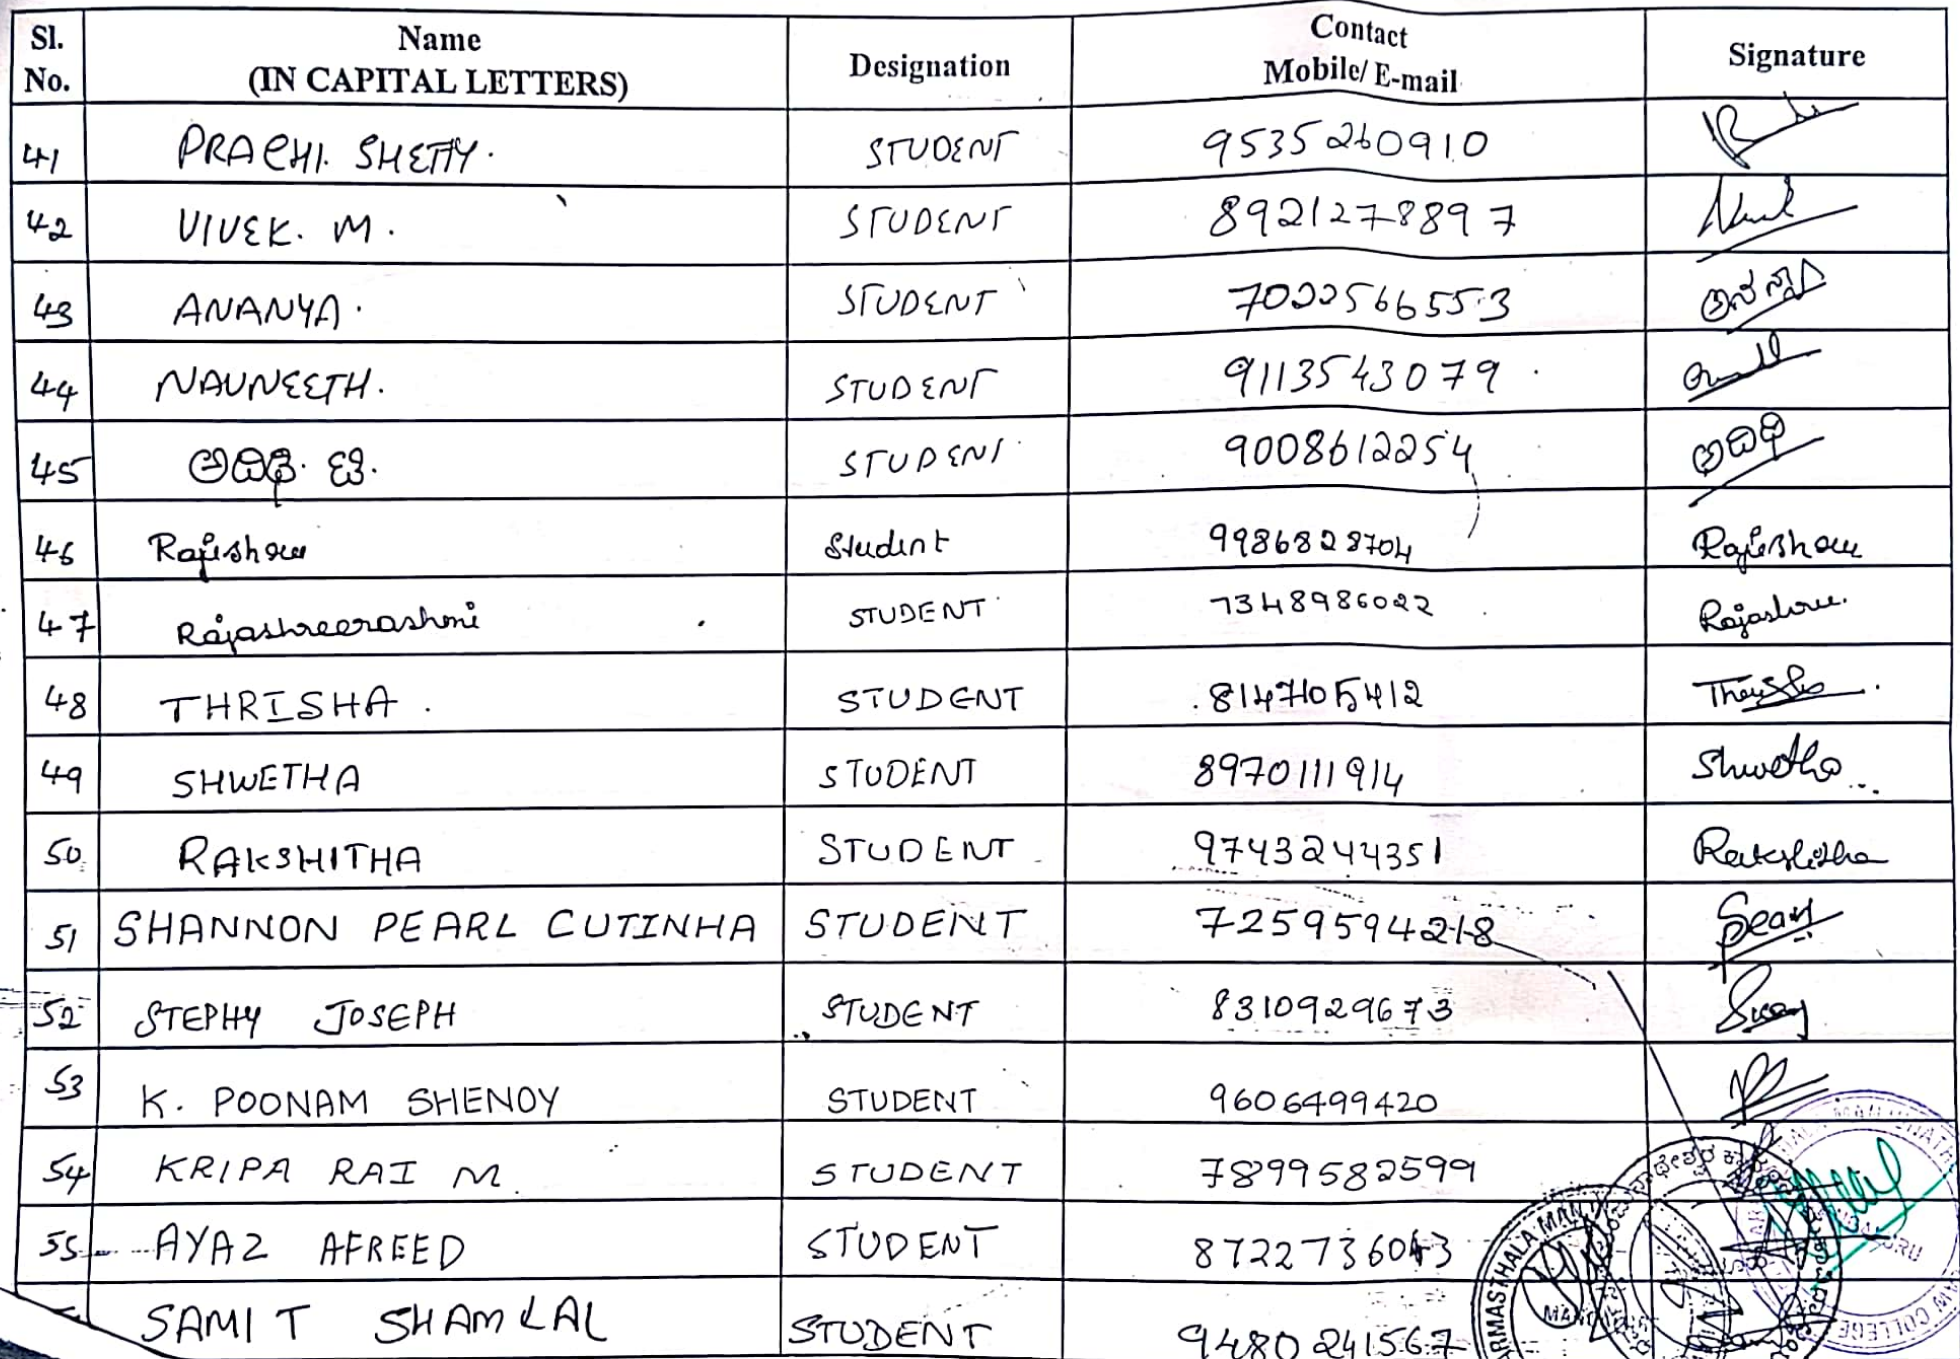 Sl. No. Name (IN CAPITAL LETTERS) Designation Contact Mobile/ E-mail Signature
41 PRACHI. SHETTY. STUDENT 9535260910
42 VIVEK. M. STUDENT 8921278897
43 ANANYA. STUDENT 7022566553 ಅನನ್ಯಾ
44 NAVNEETH. STUDENT 9113543079
45 ಅದಿಥಿ. ಟಿ. STUDENT 9008612254 ಅದಿಥಿ
46 Rajeshwari Student 9986828704 Rajeshwari
47 Rajashreerashmi STUDENT 7348986022 Rajashree.
48 THRISHA. STUDENT 8147105412 Thrisha.
49 SHWETHA STUDENT 8970111914 Shwetha
50 RAKSHITHA STUDENT 9743244351 Rakshitha
51 SHANNON PEARL CUTINHA STUDENT 7259594218
52 STEPHY JOSEPH STUDENT 8310929673
53 K. POONAM SHENOY STUDENT 9606499420
54 KRIPA RAI M. STUDENT 7899582599
55 AYAZ AFREED STUDENT 8722736043
SAMIT SHAMLAL STUDENT 9480241567